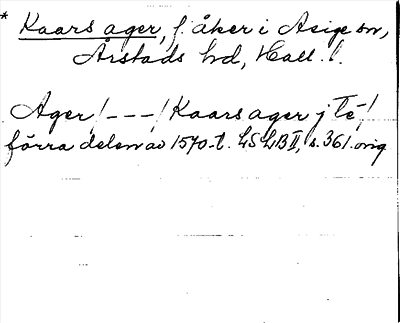 * Kaars ager, f. åker i Asige sn,
Årstads hd, Hall. l.
Ager/---/Kaars ager j Té/
förra delen av 1570-t. LSLB II, s. 361. orig.